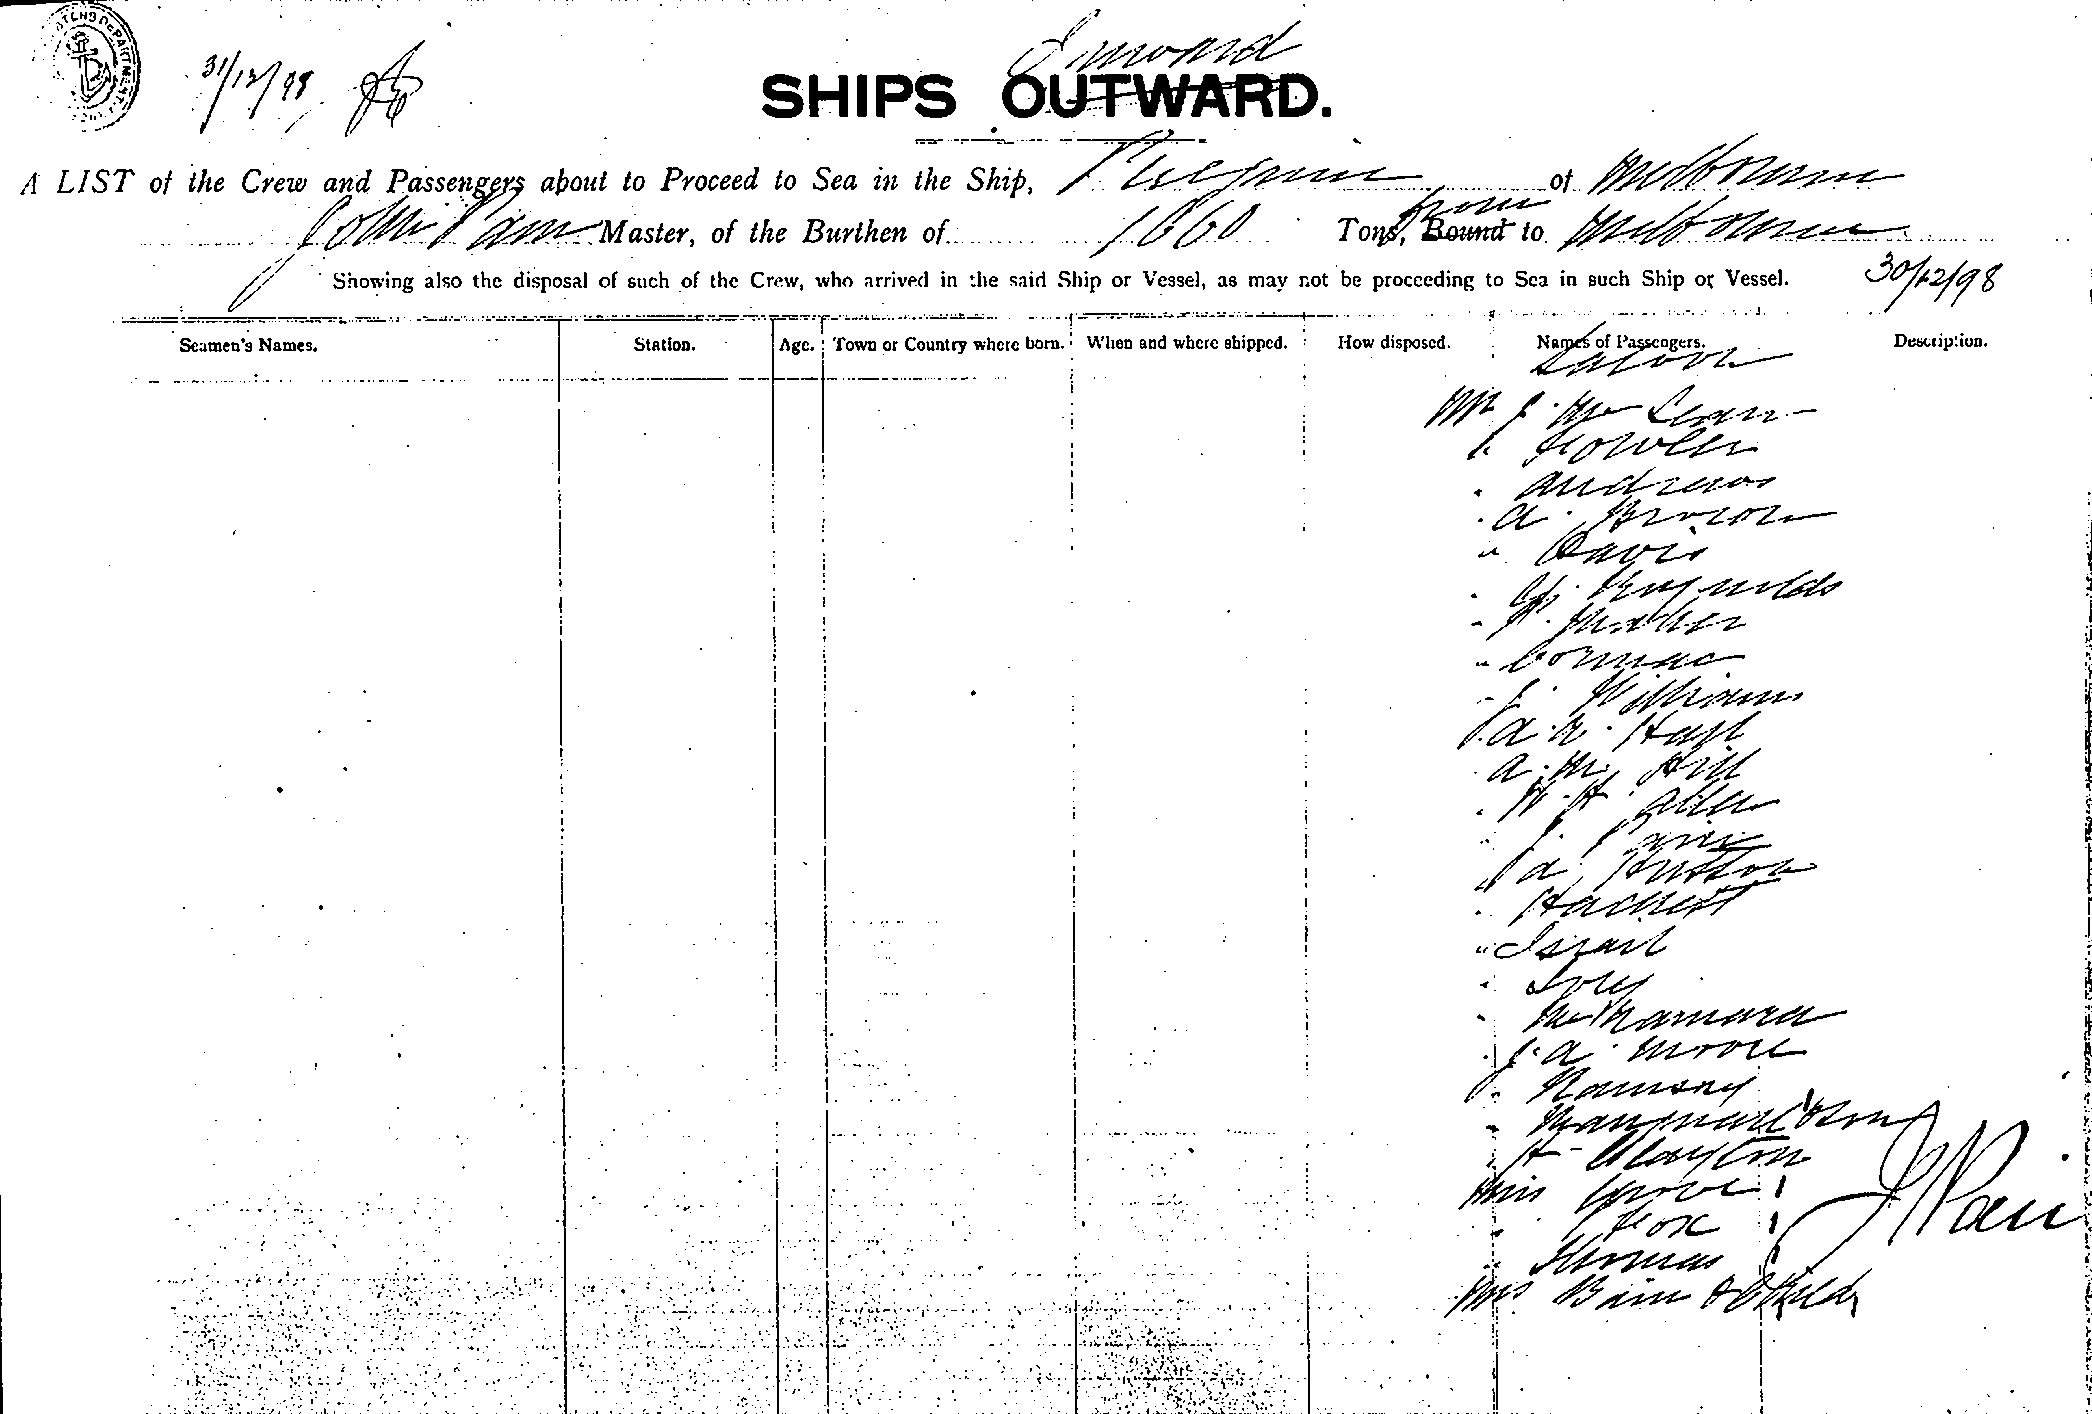 CUSTOMS DEPARTMENT
31/12/98
Inward
SHIPS OUTWARD.
A LIST of the Crew and Passengers about to Proceed to Sea in the Ship, Peregrine of Melbourne
John Pain Master, of the Burthen of 1660 Tons, Bound to from Melbourne
Showing also the disposal of such of the Crew, who arrived in the said Ship or Vessel, as may not be proceeding to Sea in such Ship or Vessel. 30/12/98
Seamen's Names. Station. Age. Town or Country where born. When and where shipped. How disposed. Names of Passengers. Description.
Saloon
Mr J. McLean
" Fowler
" Andrews
" A. Brown
" Davis
" Reynolds
" Maher
" Cormac
" J. Williams
" A. A. Hall
A. M. Hill
" W. H. Allen
" J. Pain
" A. Hutton
" Hackett
" Israel
" Ivey
" McNamara
" J. A. Moore
" Ramsay
" & Son
" H. Clayton
Miss Grove
" Fox
" Thomas
Mrs Bain & Child
J Pain